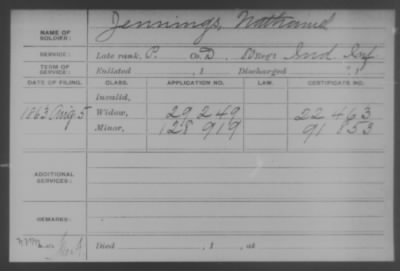 NAME OF SOLDIER: Jennings, Nathaniel
SERVICE: Late rank, P. Co. D, Regt. Ind Inf
TERM OF SERVICE: Enlisted , 1 Discharged , 1
DATE OF FILING. CLASS. APPLICATION NO. LAW. CERTIFICATE NO.
Invalid,
1863 Aug 5 Widow, 29 249 22 463
Minor, 128 919 91 853
ADDITIONAL SERVICES:
REMARKS:
Died , 1 , at